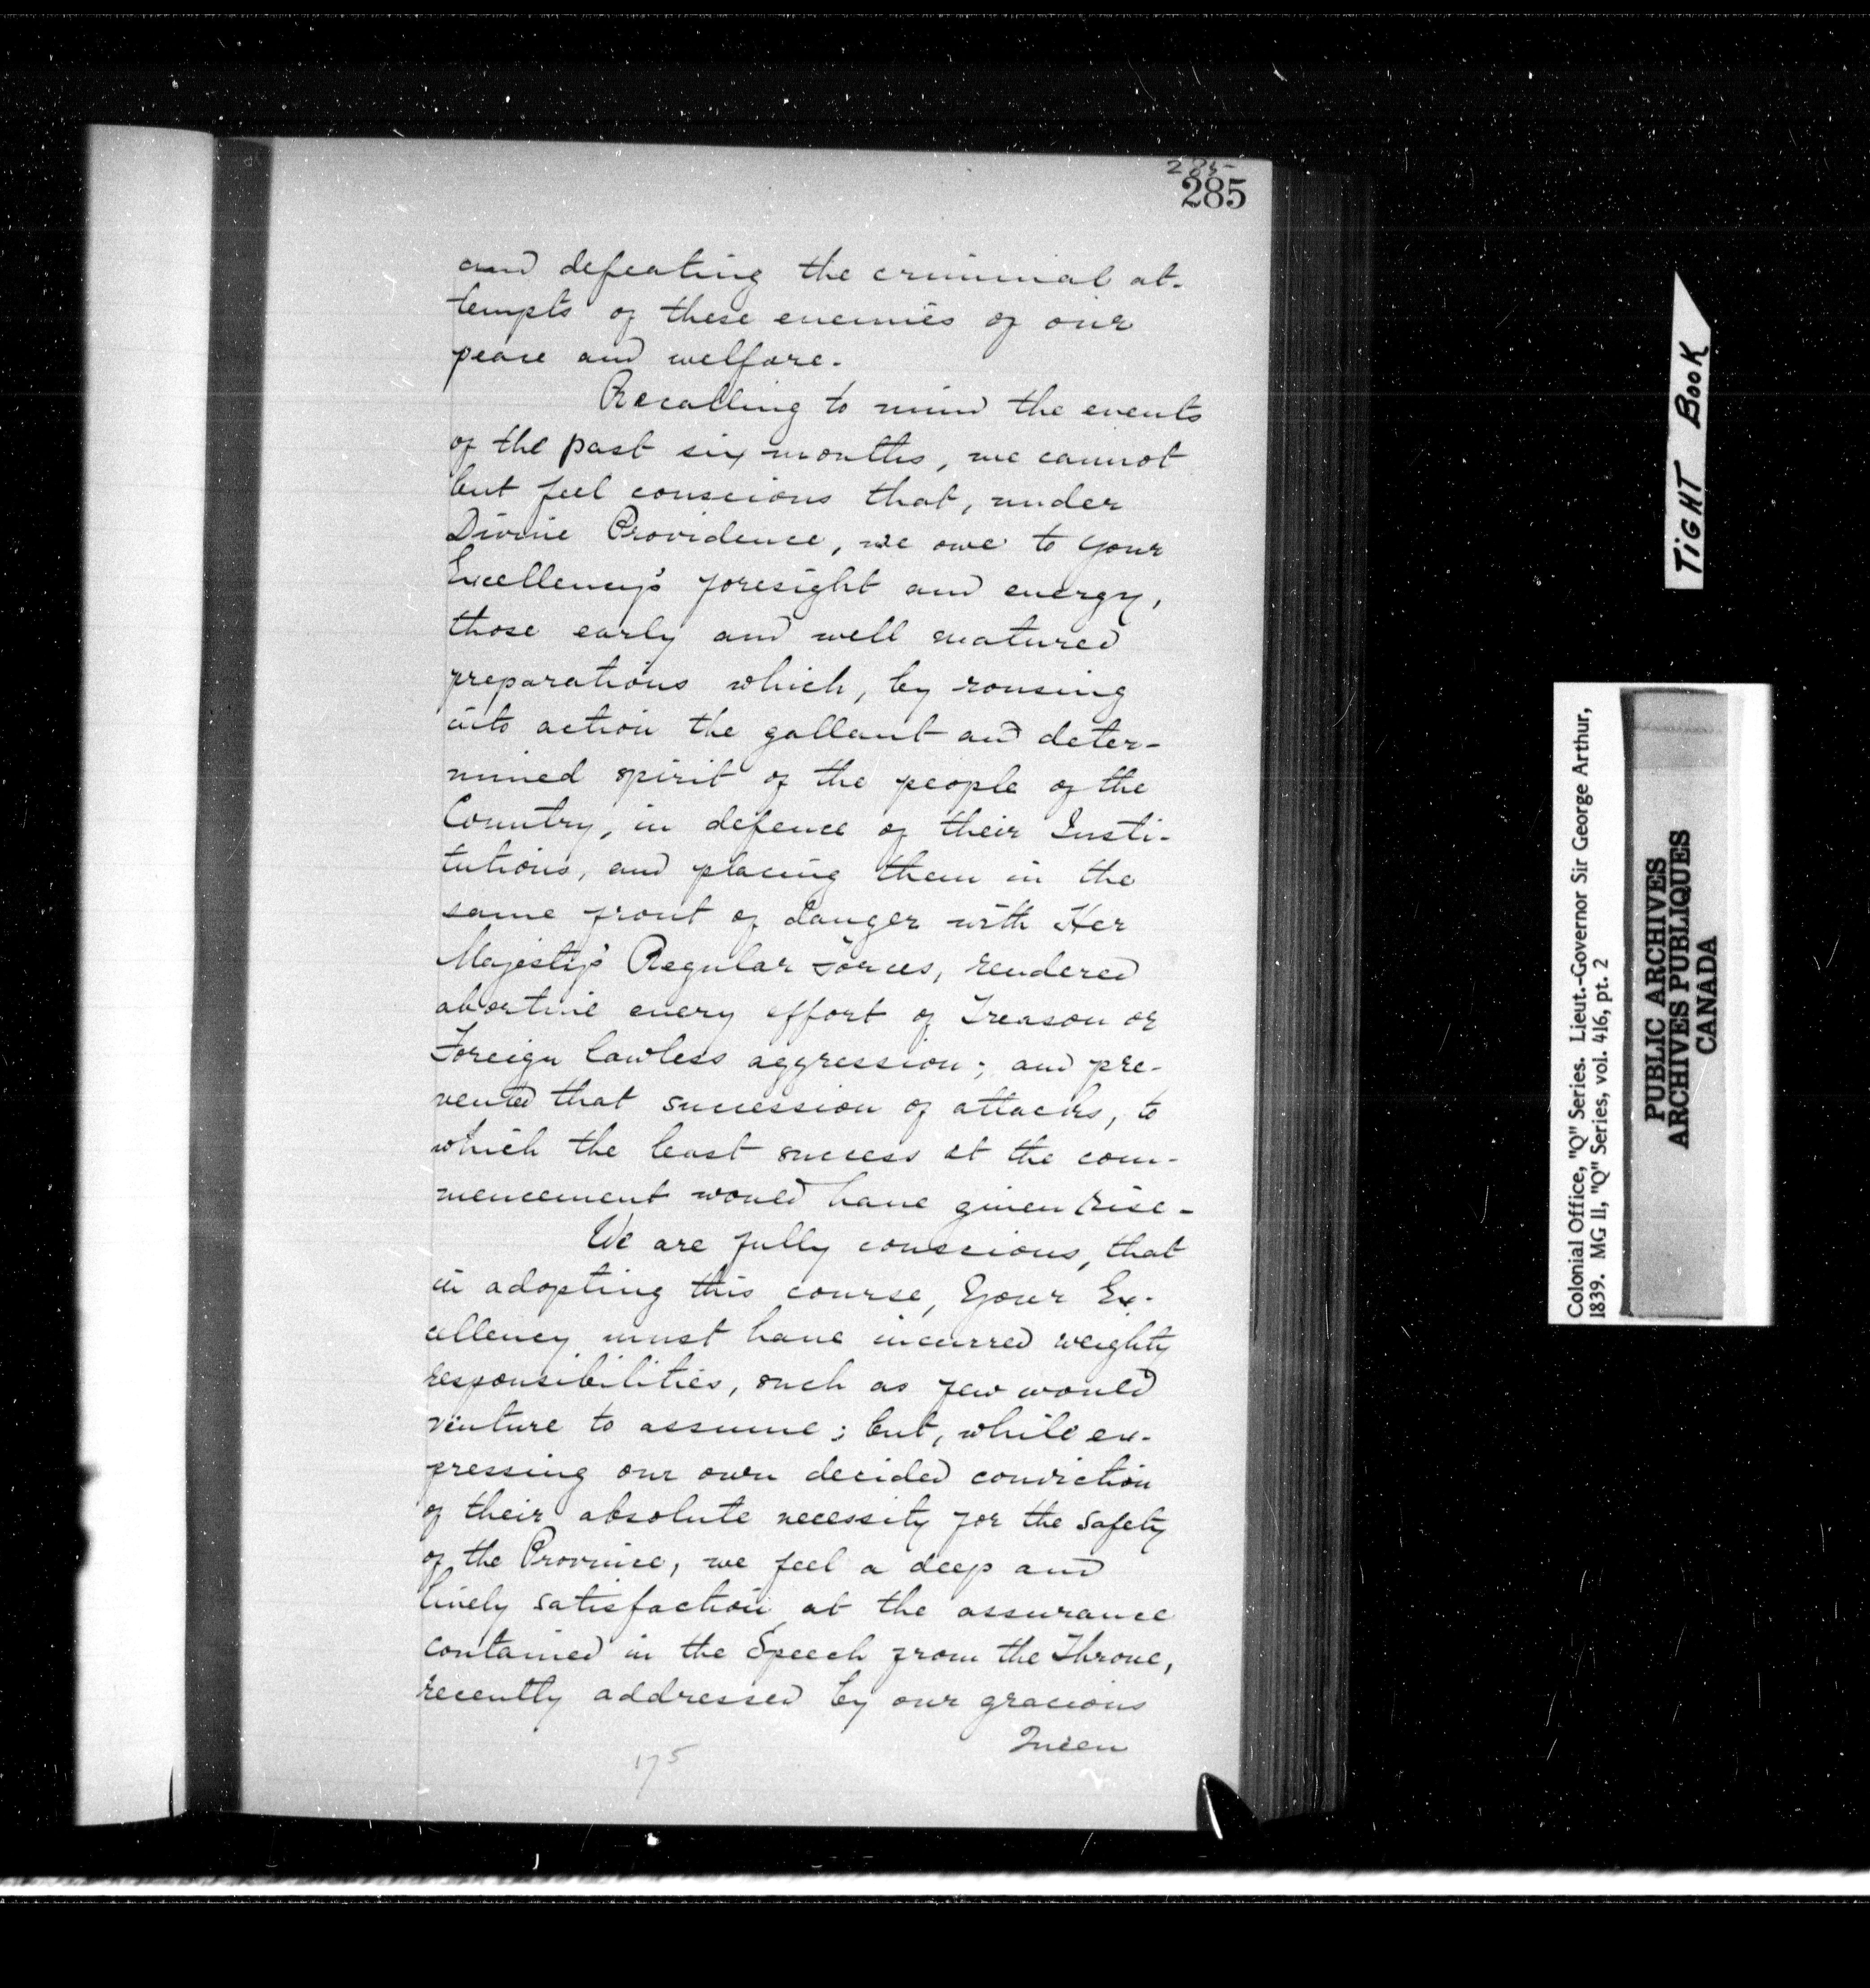 285
285
and defeating the criminal at-
tempts of these enemies of our
peace and welfare.
Recalling to mind the events
of the past six months, we cannot
but feel conscious that, under
Divine Providence, we owe to your
Excellency's foresight and energy,
those early and well matured
preparations which, by rousing
into action the gallant and deter-
mined spirit of the people of the
Country, in defence of their Insti-
tutions, and placing them in the
same front of danger with Her
Majesty's Regular Forces, rendered
abortive every effort of Treason or
Foreign lawless aggression; and pre-
vented that succession of attacks, to
which the least success at the com-
mencement would have given rise-
We are fully conscious, that
in adopting this course, Your Ex-
cellency must have incurred weighty
responsibilities, such as few would
venture to assume; but, while ex-
pressing our own decided conviction
of their absolute necessity for the safety
of the Province, we feel a deep and
lively satisfaction at the assurance
contained in the Speech from the Throne,
recently addressed by our gracious
Queen
175
TIGHT BOOK
Colonial Office, "Q" Series. Lieut.-Governor Sir George Arthur,
1839. MG 11, "Q" Series, vol. 416, pt. 2
PUBLIC ARCHIVES
ARCHIVES PUBLIQUES
CANADA